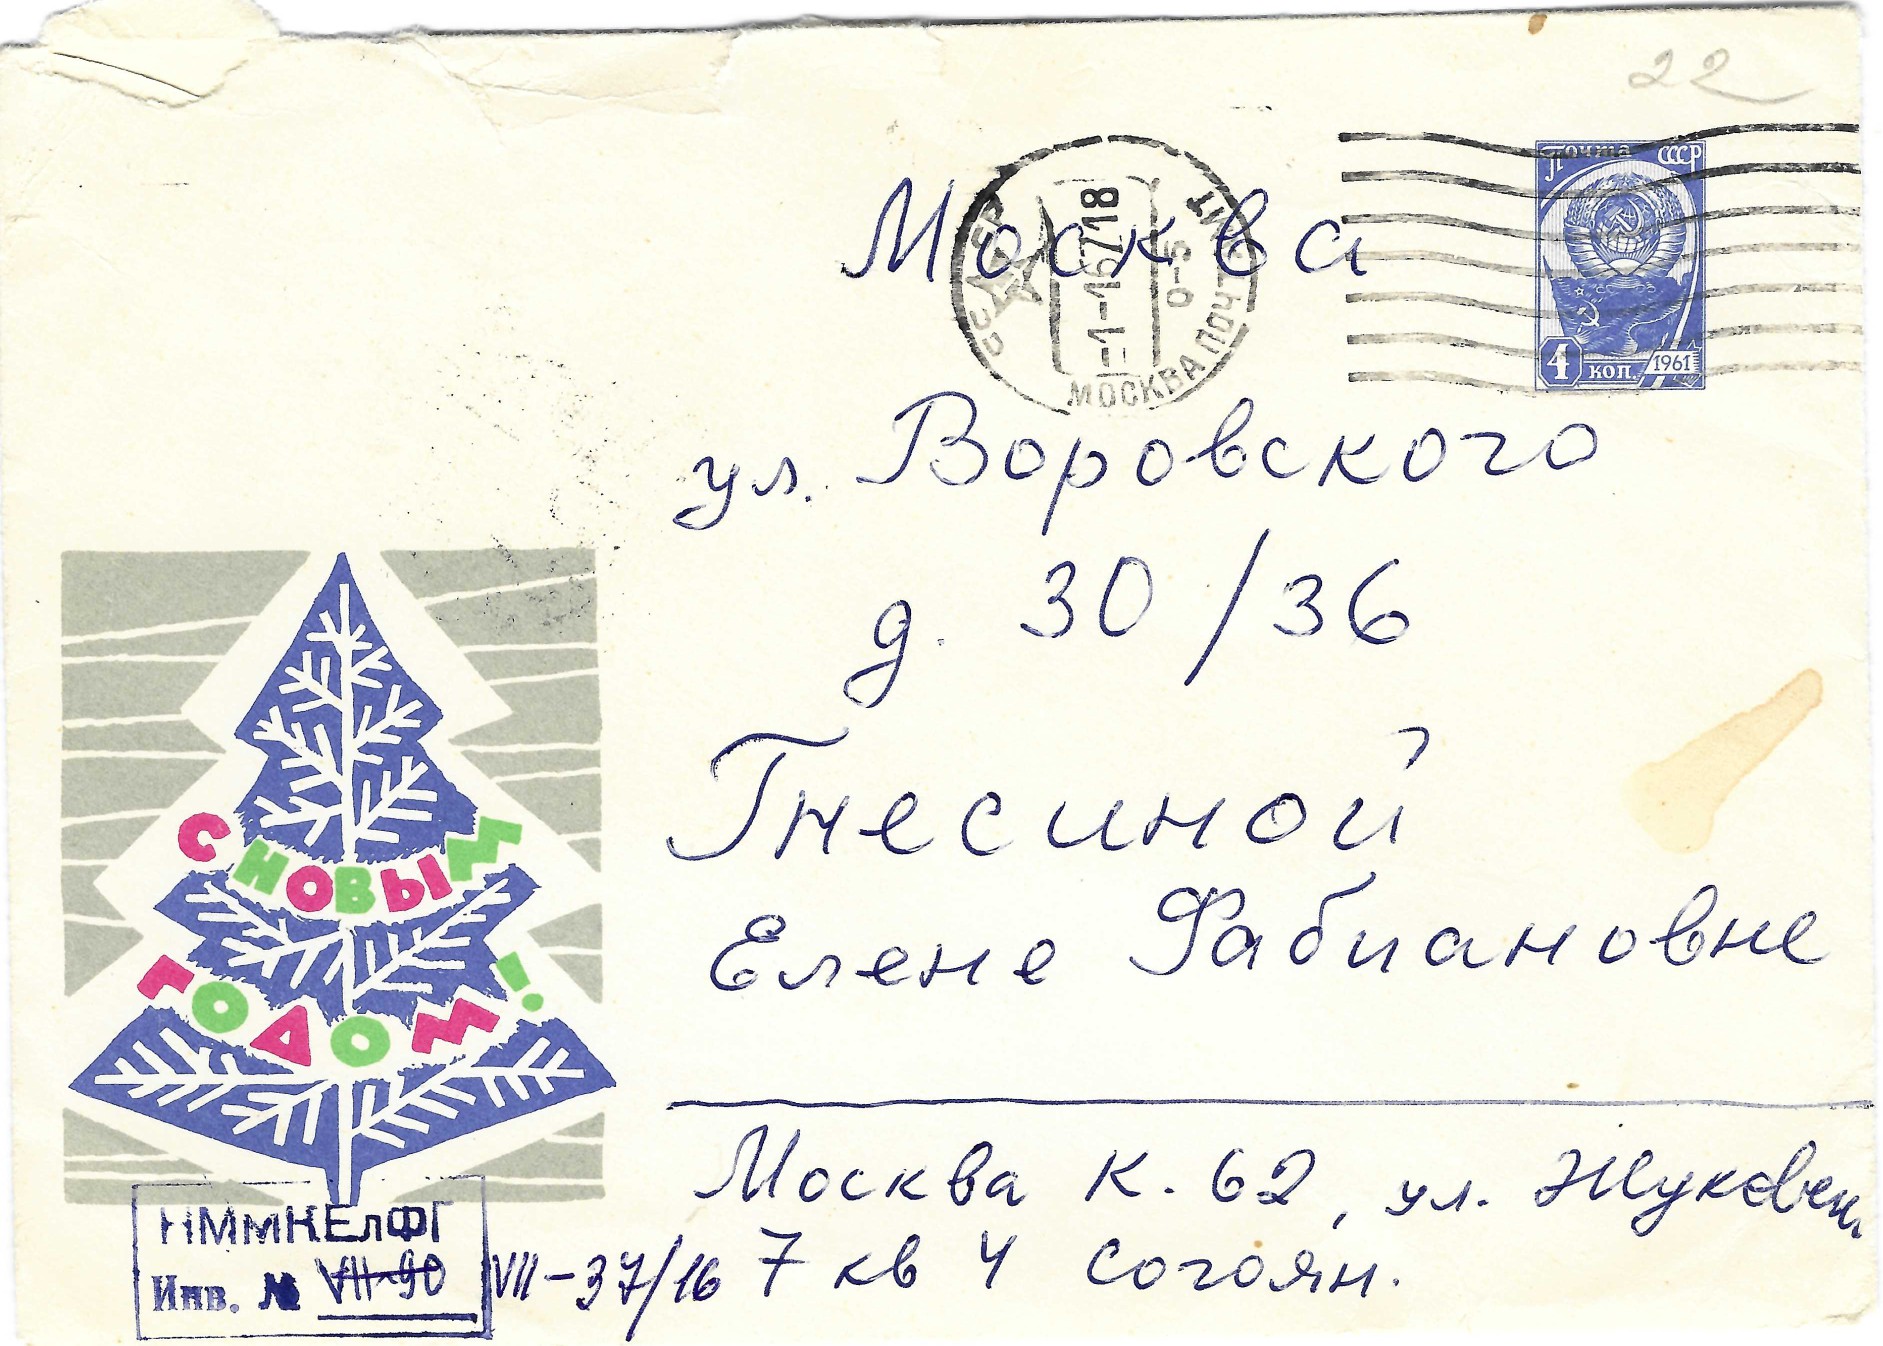 22
Почта СССР
4 коп. 1961
МОСКВА ПОЧТАМТ
-1-1-67 18
0-5
Москва
ул. Воровского
д. 30/36
Гнесиной
Елене Фабиановне
С НОВЫМ
ГОДОМ!
Москва К. 62, ул. Жуковск.
7 кв 4 Согоян.
НММКЕлФГ
Инв. № VII-90 VII-37/16